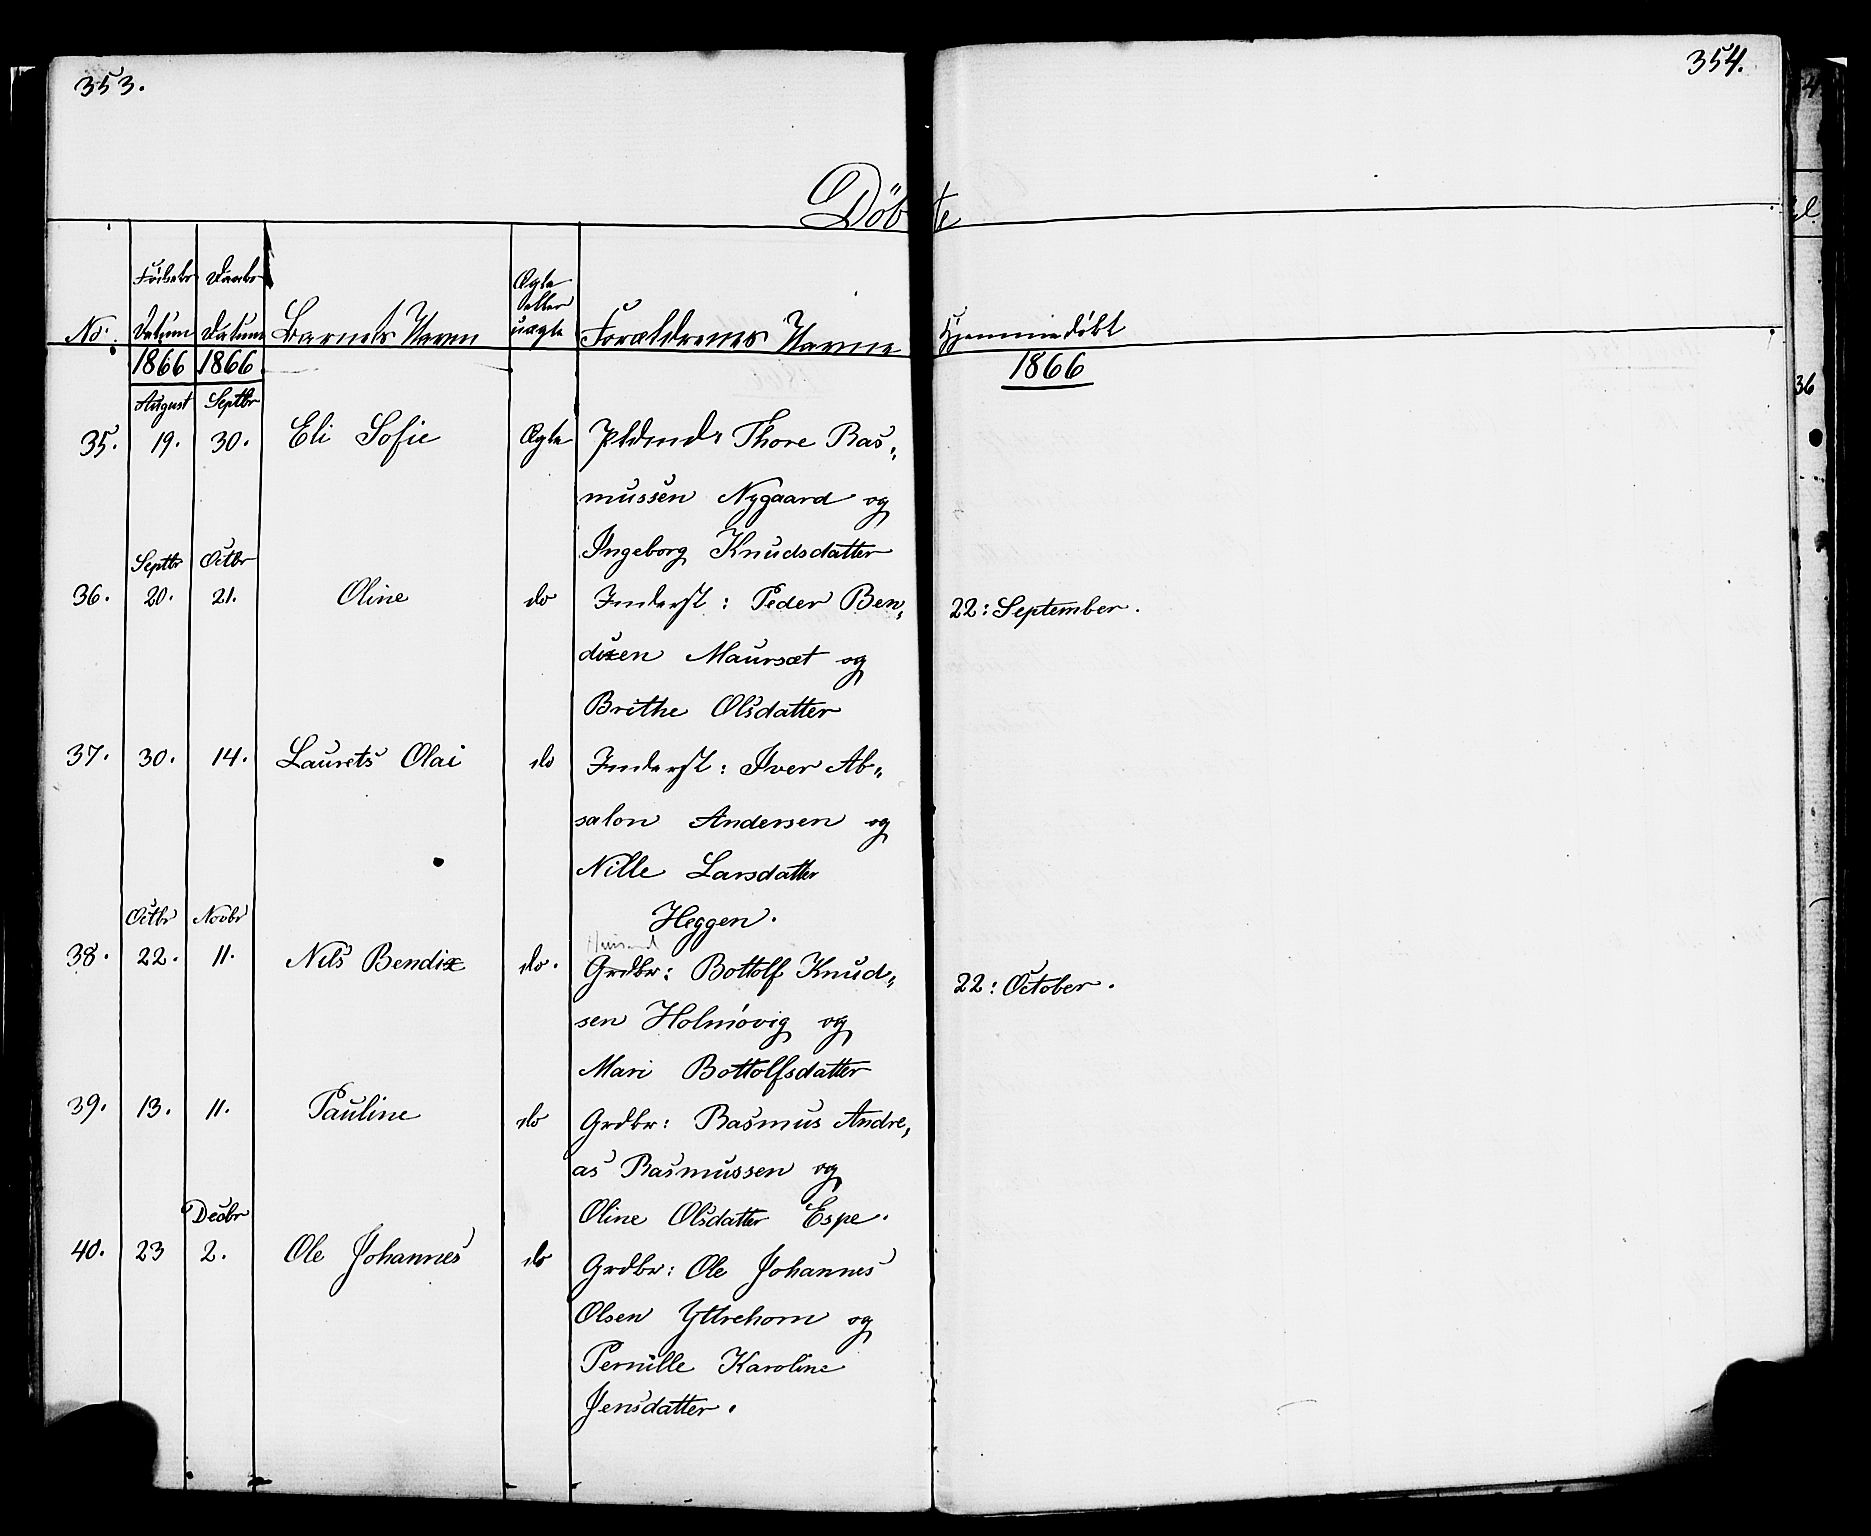 353.
354.
Döbte
No:
Födsels Datum
Daabs Datum
Barnets Navn
Ægte eller uægte
Forældrenes Navne
Hjemmedöbt
1866
1866
1866
August
Septbr
35. 19. 30. Eli Sofie Ægte Pldmd: Thore Ras„
mussen Nygaard og
Ingeborg Knudsdatter
Septbr Octbr
36. 20. 21. Oline do Inderst: Peder Ben„ 22: September.
dixen Maursæt og
Brithe Olsdatter
37. 30. 14. Laurets Olai do Inderst: Iver Ab„
salon Andersen og
Nille Larsdatter
Heggen.
Octbr Novbr
38. 22. 11. Nils Bendix do. Grdbr: Bottolf Knud„ 22: October.
sen Holmövig og
Mari Bottolfsdatter
39. 13. 11. Pauline do Grdbr: Rasmus Andre„
as Rasmussen og
Oline Olsdatter Espe.
Decbr
40. 23 2. Ole Johannes do Grdbr: Ole Johannes
Olsen Yttrehorn og
Pernille Karoline
Jensdatter.
36